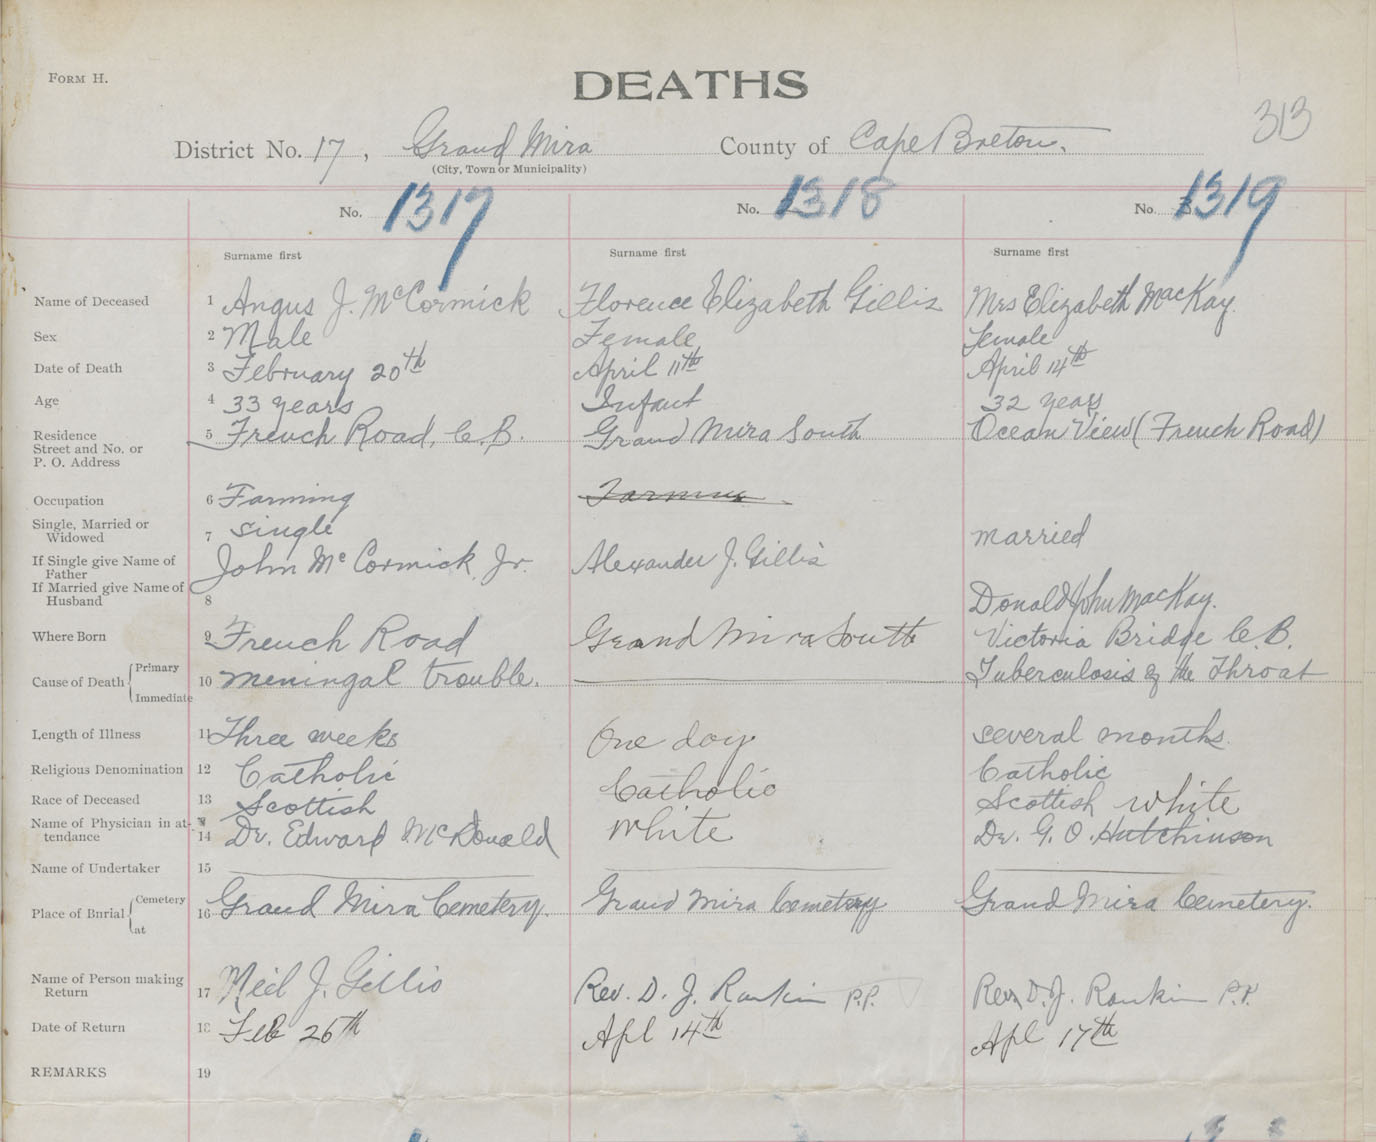 FORM H.
DEATHS
313
District No. 17, Grand Mira County of Cape Breton.
(City, Town or Municipality)
No. 1317 No. 1318 No. 1319
Surname first Surname first Surname first
Name of Deceased 1 Angus J. McCormick Florence Elizabeth Gillis Mrs Elizabeth MacKay.
Sex 2 Male Female Female
Date of Death 3 February 20th April 11th April 14th
Age 4 33 years Infant 32 years
Residence Street and No. or P. O. Address 5 French Road, C.B. Grand Mira South Ocean View (French Road)
Occupation 6 Farming Farming
Single, Married or Widowed 7 Single married
If Single give Name of Father John McCormick, Jr. Alexander J. Gillis
If Married give Name of Husband 8 Donald John MacKay.
Where Born 9 French Road Grand Mira South Victoria Bridge C.B.
Cause of Death Primary Immediate 10 meningal trouble. Tuberculosis of the Throat
Length of Illness 11 Three weeks One day. several months.
Religious Denomination 12 Catholic Catholic Catholic
Race of Deceased 13 Scottish White Scottish White
Name of Physician in attendance 14 Dr. Edward McDonald Dr. G. O. Hutchinson
Name of Undertaker 15
Place of Burial Cemetery at 16 Grand Mira Cemetery. Grand Mira Cemetery Grand Mira Cemetery.
Name of Person making Return 17 Neil J. Gillis Rev. D. J. Rankin P.P. Rev. D. J. Rankin P.P.
Date of Return 18 Feb 26th Apl 14th Apl 17th
REMARKS 19